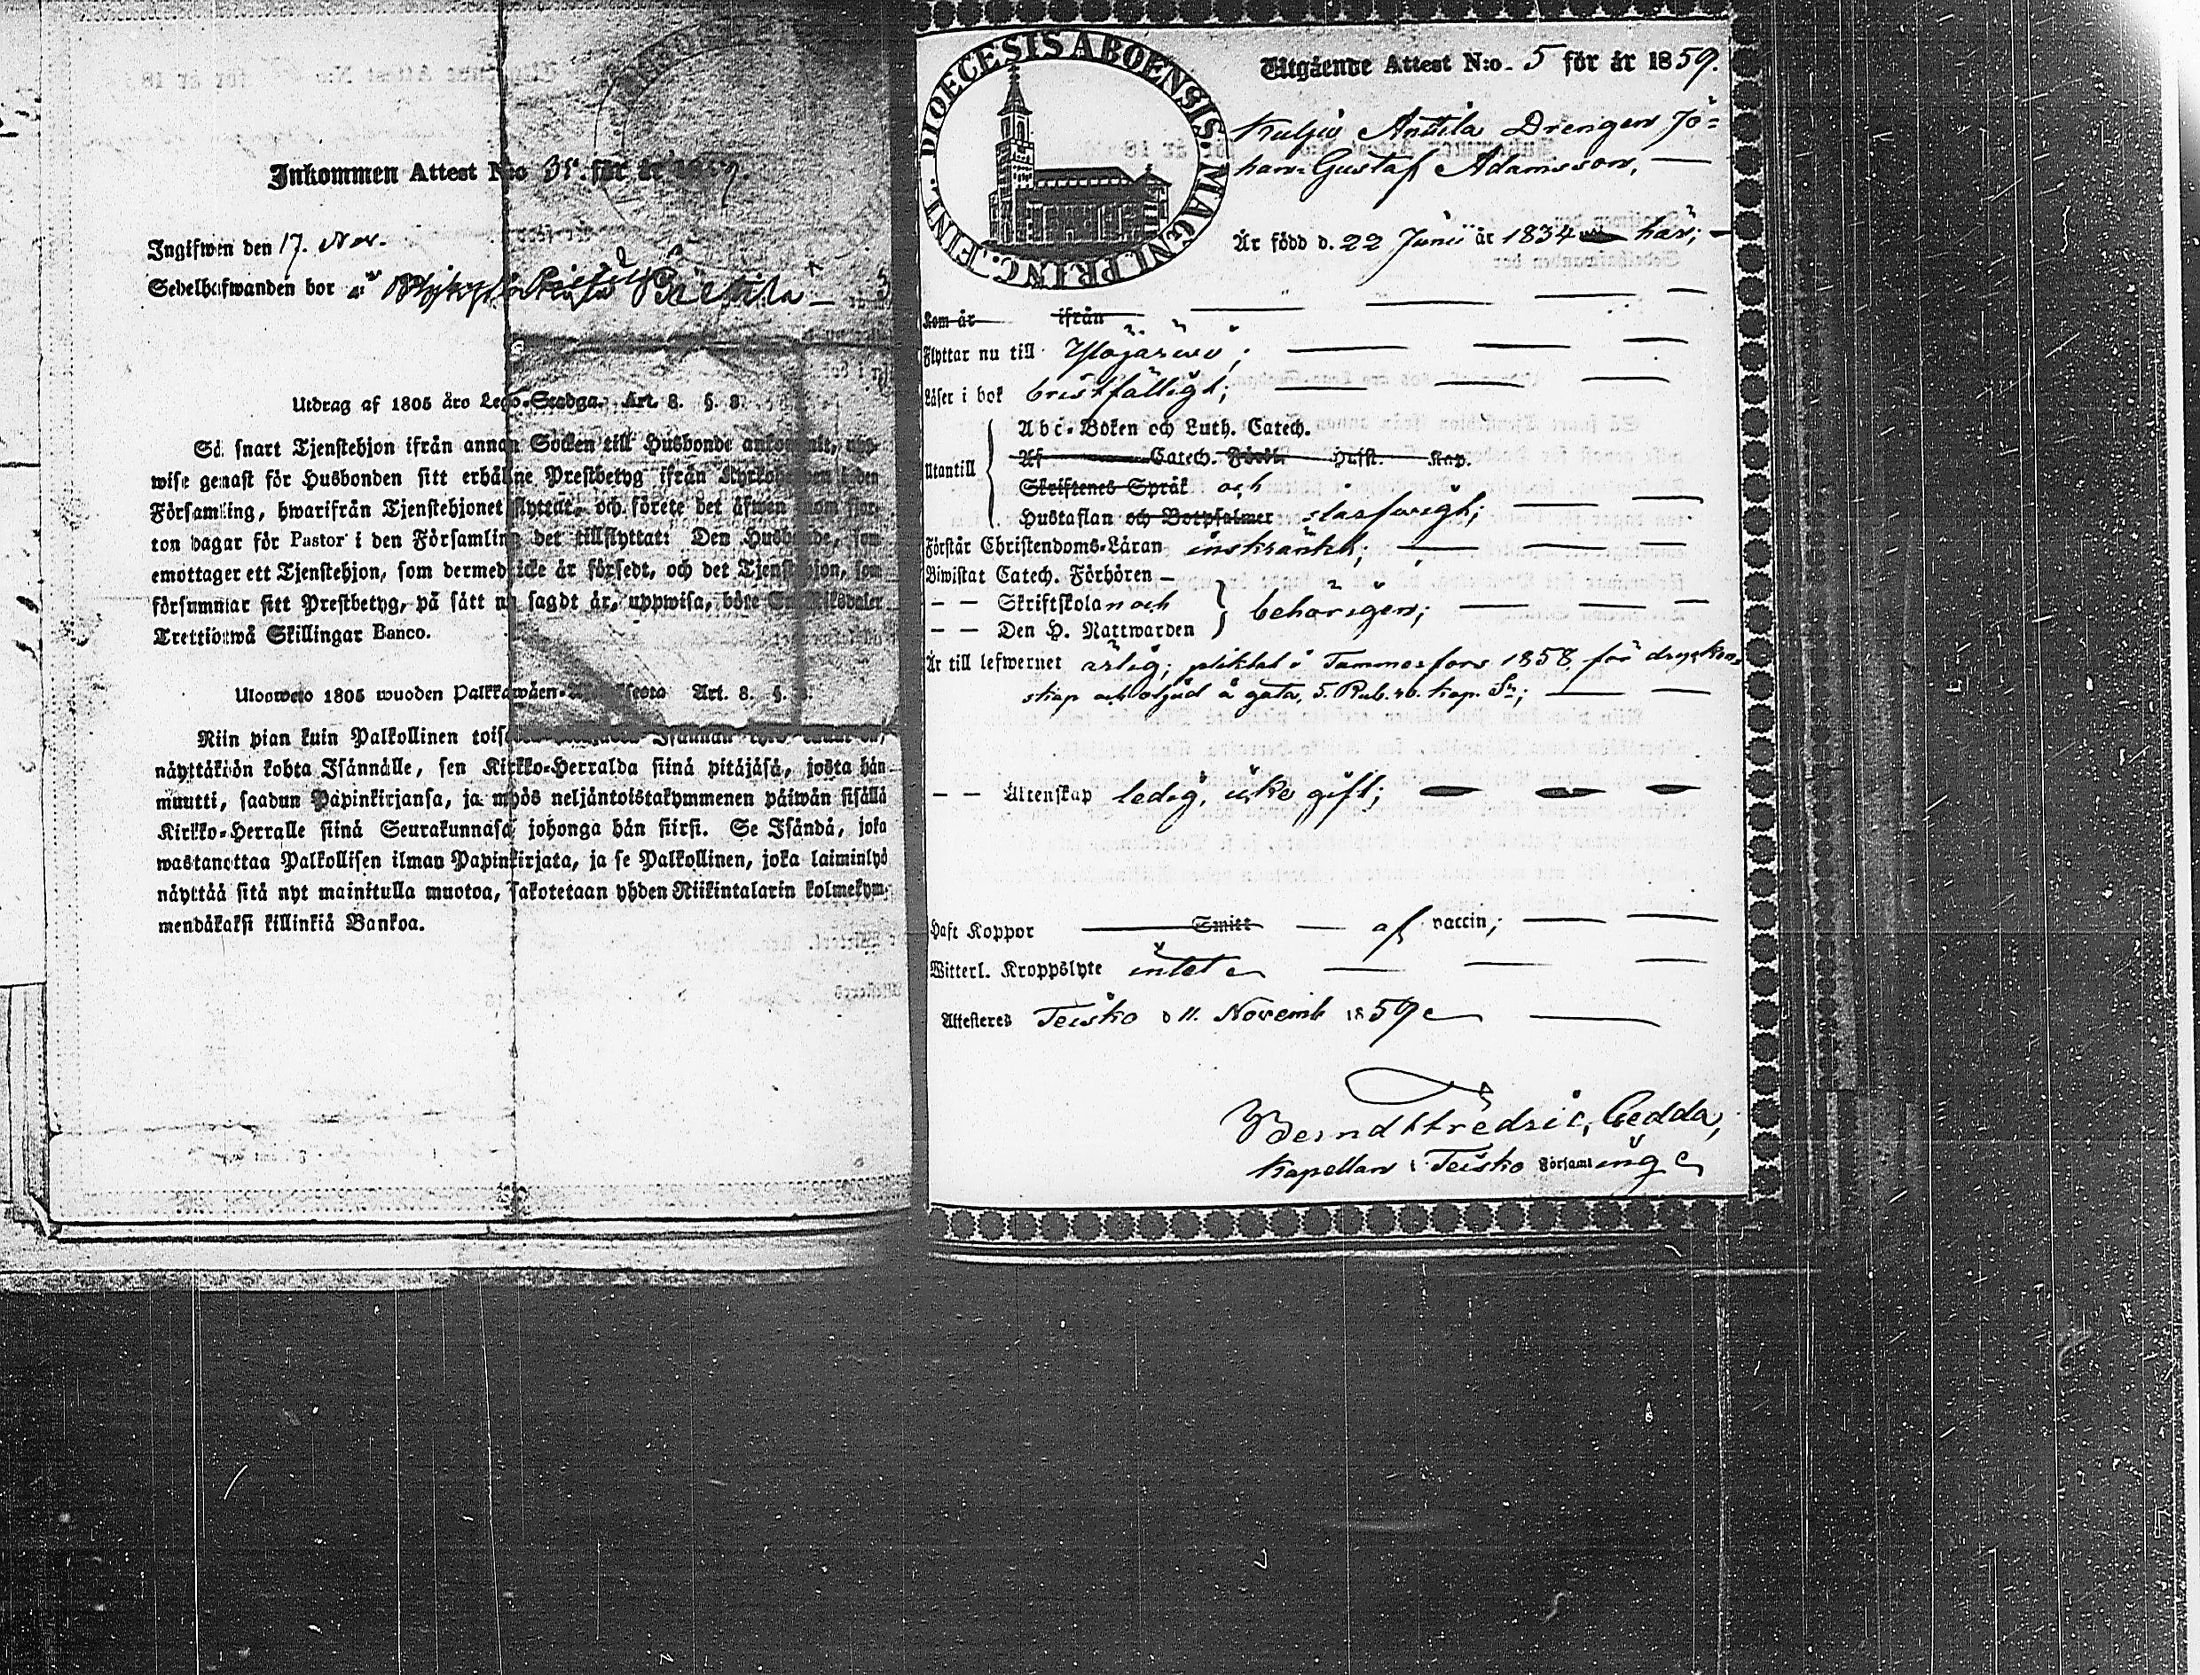 Inkommen Attest N:o 38. för år 1859.
Ingifwen den 17. Nov.
Sedelhafwanden bor
Utdrag af 1805 års Lego-Stadga. Art. 8. §. 8.
Så snart Tjenstehjon ifrån annan Socken till Husbonde ankommit, upp-
wise genast för Husbonden sitt erhållne Prestbetyg ifrån Kyrkoherden i den
Församling, hwarifrån Tjenstehjonet flyttat, och förete det äfwen inom fjor-
ton dagar för Pastor i den Församling det tillflyttat: Den Husbonde, som
emottager ett Tjenstehjon, som dermed icke är försedt, och det Tjenstehjon, som
försummar sitt Prestbetyg, på sätt nu sagdt är, uppwisa, böte En Riksdaler
Trettiotwå Skillingar Banco.
Ulosweto 1805 wuoden Palkkawäen- Art. 8. §.
Niin pian kuin Palkollinen
näyttäköön kohta Isännälle, sen Kirkko-Herralda siinä pitäjäsä, josta hän
muutti, saadun Papinkirjansa, ja myös neljäntoistakymmenen päiwän sisällä
Kirkko-Herralle siinä Seurakunnasa johonga hän siirsi. Se Isändä, joka
wastanottaa Palkollisen ilman Papinkirjata, ja se Palkollinen, joka laiminlyö
näyttää sitä nyt mainitulla muotoa, sakotetaan yhden Riikintalarin kolmekym-
mendäkaksi killinkiä Bankoa.
DIOECESIS ABOENSIS. MAGNI. PRINC. FINL.
Utgående Attest N:o 5 för år 1859.
Kulju Anttila Drengen Jo=
han Gustaf Adamsson,
Är född d. 22 Junii år 1834 här;
Kom år ifrån
Flyttar nu till Ylöjärwi;
Läser i bok bristfälligt;
Utantill
Abc-Boken och Luth. Catech.
Af Catech. Förkl. Hufst. Kap.
Skriftenes Språk och
Hustaflan och Botpsalmer slarfwigt;
Förstår Christendoms-Läran inskränkt;
Biwistat Catech. Förhören
— — Skriftskolan och behörigen;
— — Den H. Nattwarden
Är till lefwernet ärlig; pliktat i Tammerfors 1858 för drycken-
skap och oljud å gata, 5. Rub. 76. kop. Sr;
— — Äktenskap ledig, icke gift;
Haft Koppor Smitt af vaccin;
Witterl. Kroppslyte intet
Attesteres Teisko d 11. Novemb 1859
Berndt Fredric Gedda,
Kapellan i Teisko Församling